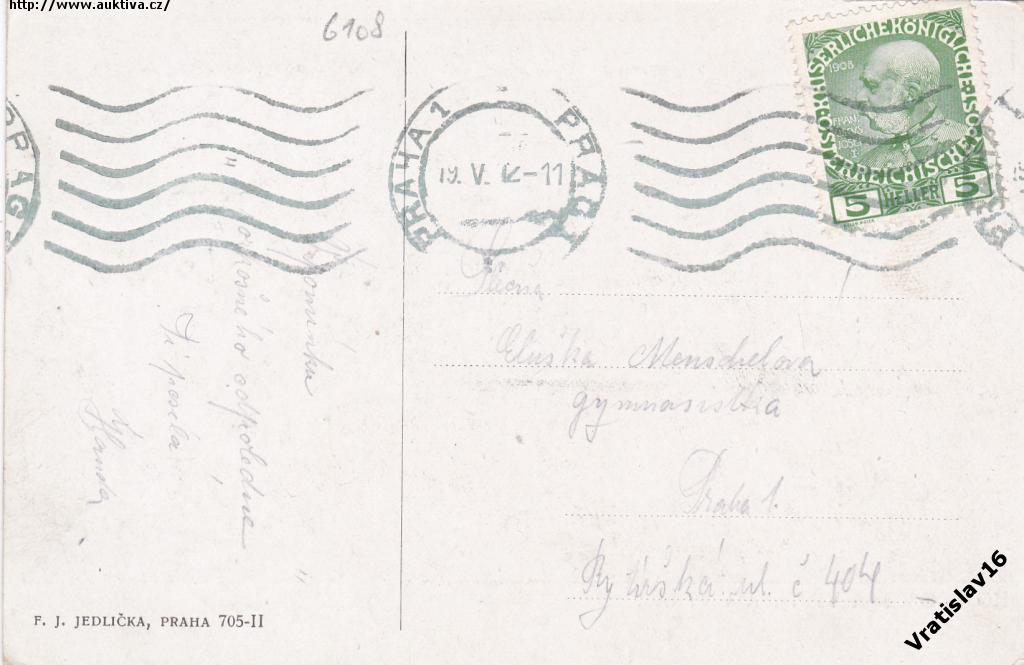 http://www.auktiva.cz/
6108
PRAG
PRAHA 1
PRAG 1
19. V. 12-11
KAISERLICHEKÖNIGLICHE
ÖSTERREICHISCHE
1908
FRANZ
JOSEF
5 HELLER 5
Slečna
Eluška Menschelova
gymnasistka
Praha 1.
Rytířská ul. č 404
Vzpomínku
odpoledne
Ti posílá
Handa
F. J. JEDLIČKA, PRAHA 705-II
Vratislav16